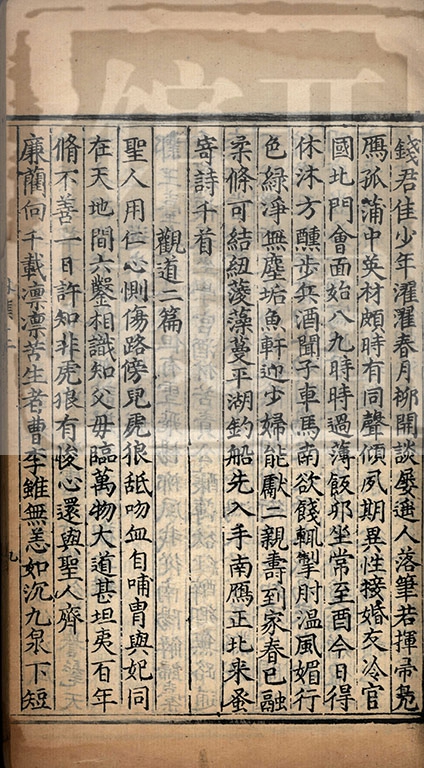 錢君佳少年濯濯春月栁開談屡逼人落筆若揮帚凫
鴈孤蒲中英材頗時有同聲傾夙期異性接婚友冷官
國北門會面始八九時時過薄飯邜坐常至酉今日得
休沐方醺歩兵酒聞子車馬南欲餞輒掣肘温風媚行
色緑淨無塵垢魚軒迎少婦能獻二親壽到家春已融
柔條可結紐菱藻蔓平湖釣船先入手南鴈正北來蚤
寄詩千首
觀道二篇
聖人用仁心惻傷路傍兒虎狼舐吻血自哺胄與妃同
在天地間六鑿相識知父毋臨萬物大道甚坦夷百年
脩不善一日許知非虎狼有悛心還與聖人齊
廉藺向千載凛凛苦生者曹李雖無恙如沉九泉下短
九